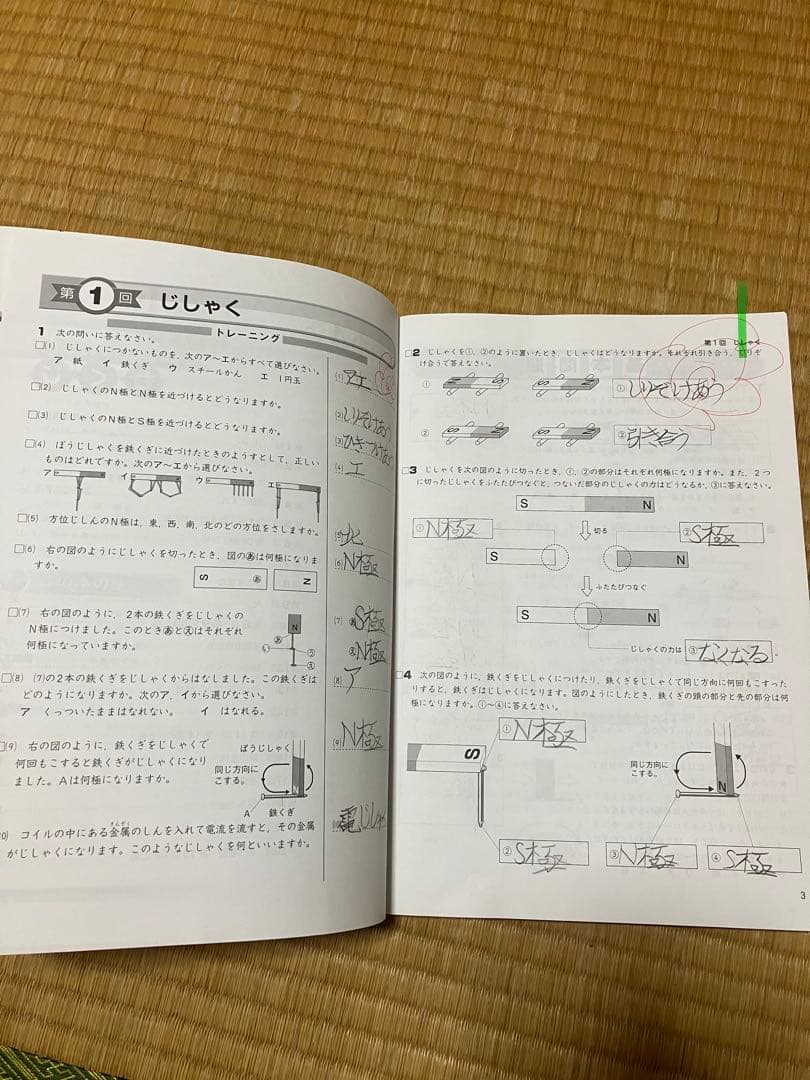 第1回 じしゃく
トレーニング
1 次の問いに答えなさい。
□(1) じしゃくにつかないものを、次のア〜エからすべて選びなさい。
ア 紙 イ 鉄くぎ ウ スチールかん エ 1円玉
(1) アエ
□(2) じしゃくのN極とN極を近づけるとどうなりますか。
(2) しりぞけあう
□(3) じしゃくのN極とS極を近づけるとどうなりますか。
(3) ひきつけあう
□(4) ぼうじしゃくを鉄くぎに近づけたときのようすとして、正しい
ものはどれですか。次のア〜エから選びなさい。
(4) エ
ア イ ウ エ
□(5) 方位じしんのN極は、東、西、南、北のどの方位をさしますか。
(5) 北
□(6) 右の図のようにじしゃくを切ったとき、図のあは何極になりま
すか。
(6) N極
S あ N
□(7) 右の図のように、2本の鉄くぎをじしゃくの
N極につけました。このときあとえはそれぞれ
何極になっていますか。
N
あ い う え
(7) あ S極
え N極
□(8) (7)の2本の鉄くぎをじしゃくからはなしました。この鉄くぎは
どのようになりますか。次のア、イから選びなさい。
ア くっついたままはなれない。 イ はなれる。
(8) ア
□(9) 右の図のように、鉄くぎをじしゃくで
何回もこすると鉄くぎがじしゃくになり
ました。Aは何極になりますか。
ぼうじしゃく
同じ方向に
こする。
N
A 鉄くぎ
(9) N極
0) コイルの中にある金属のしんを入れて電流を流すと、その金属
きんぞく
がじしゃくになります。このようなじしゃくを何といいますか。
電じしゃく
第1回 じしゃく
□2 じしゃくを①、②のように置いたとき、じしゃくはどうなりますか。それぞれ引き合う、しりぞ
け合うで答えなさい。
① N S S N
① しりぞけあう
② S N S N
② 引き合う
□3 じしゃくを次の図のように切ったとき、①、②の部分はそれぞれ何極になりますか。また、2つ
に切ったじしゃくをふたたびつなぐと、つないだ部分のじしゃくの力はどうなるか、③に答えなさい。
S N
① N極
切る
② S極
S N
ふたたびつなぐ
S N
じしゃくの力は ③ なくなる 。
□4 次の図のように、鉄くぎをじしゃくにつけたり、鉄くぎをじしゃくで同じ方向に何回もこすった
りすると、鉄くぎはじしゃくになります。図のようにしたとき、鉄くぎの頭の部分と先の部分は何
極になりますか。①〜④に答えなさい。
① N極
S
同じ方向に
こする。
N
② S極
③ N極
④ S極
3